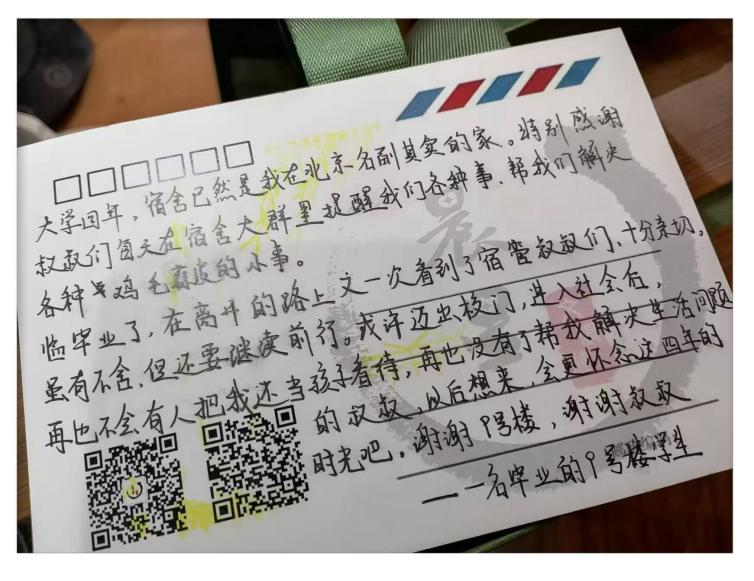 大学四年，宿舍已然是我在北京名副其实的家。特别感谢
叔叔们每天在宿舍大群里提醒我们各种事、帮我们解决
各种鸡毛蒜皮的小事。
临毕业了，在离开的路上又一次看到了宿管叔叔们、十分亲切。
虽有不舍，但还要继续前行。或许迈出校门，进入社会后，
再也不会有人把我还当孩子看待，再也没有了帮我解决生活问题
的叔叔，以后想来，会更怀念这四年的
时光吧。谢谢9号楼，谢谢叔叔
——一名毕业的9号楼学生